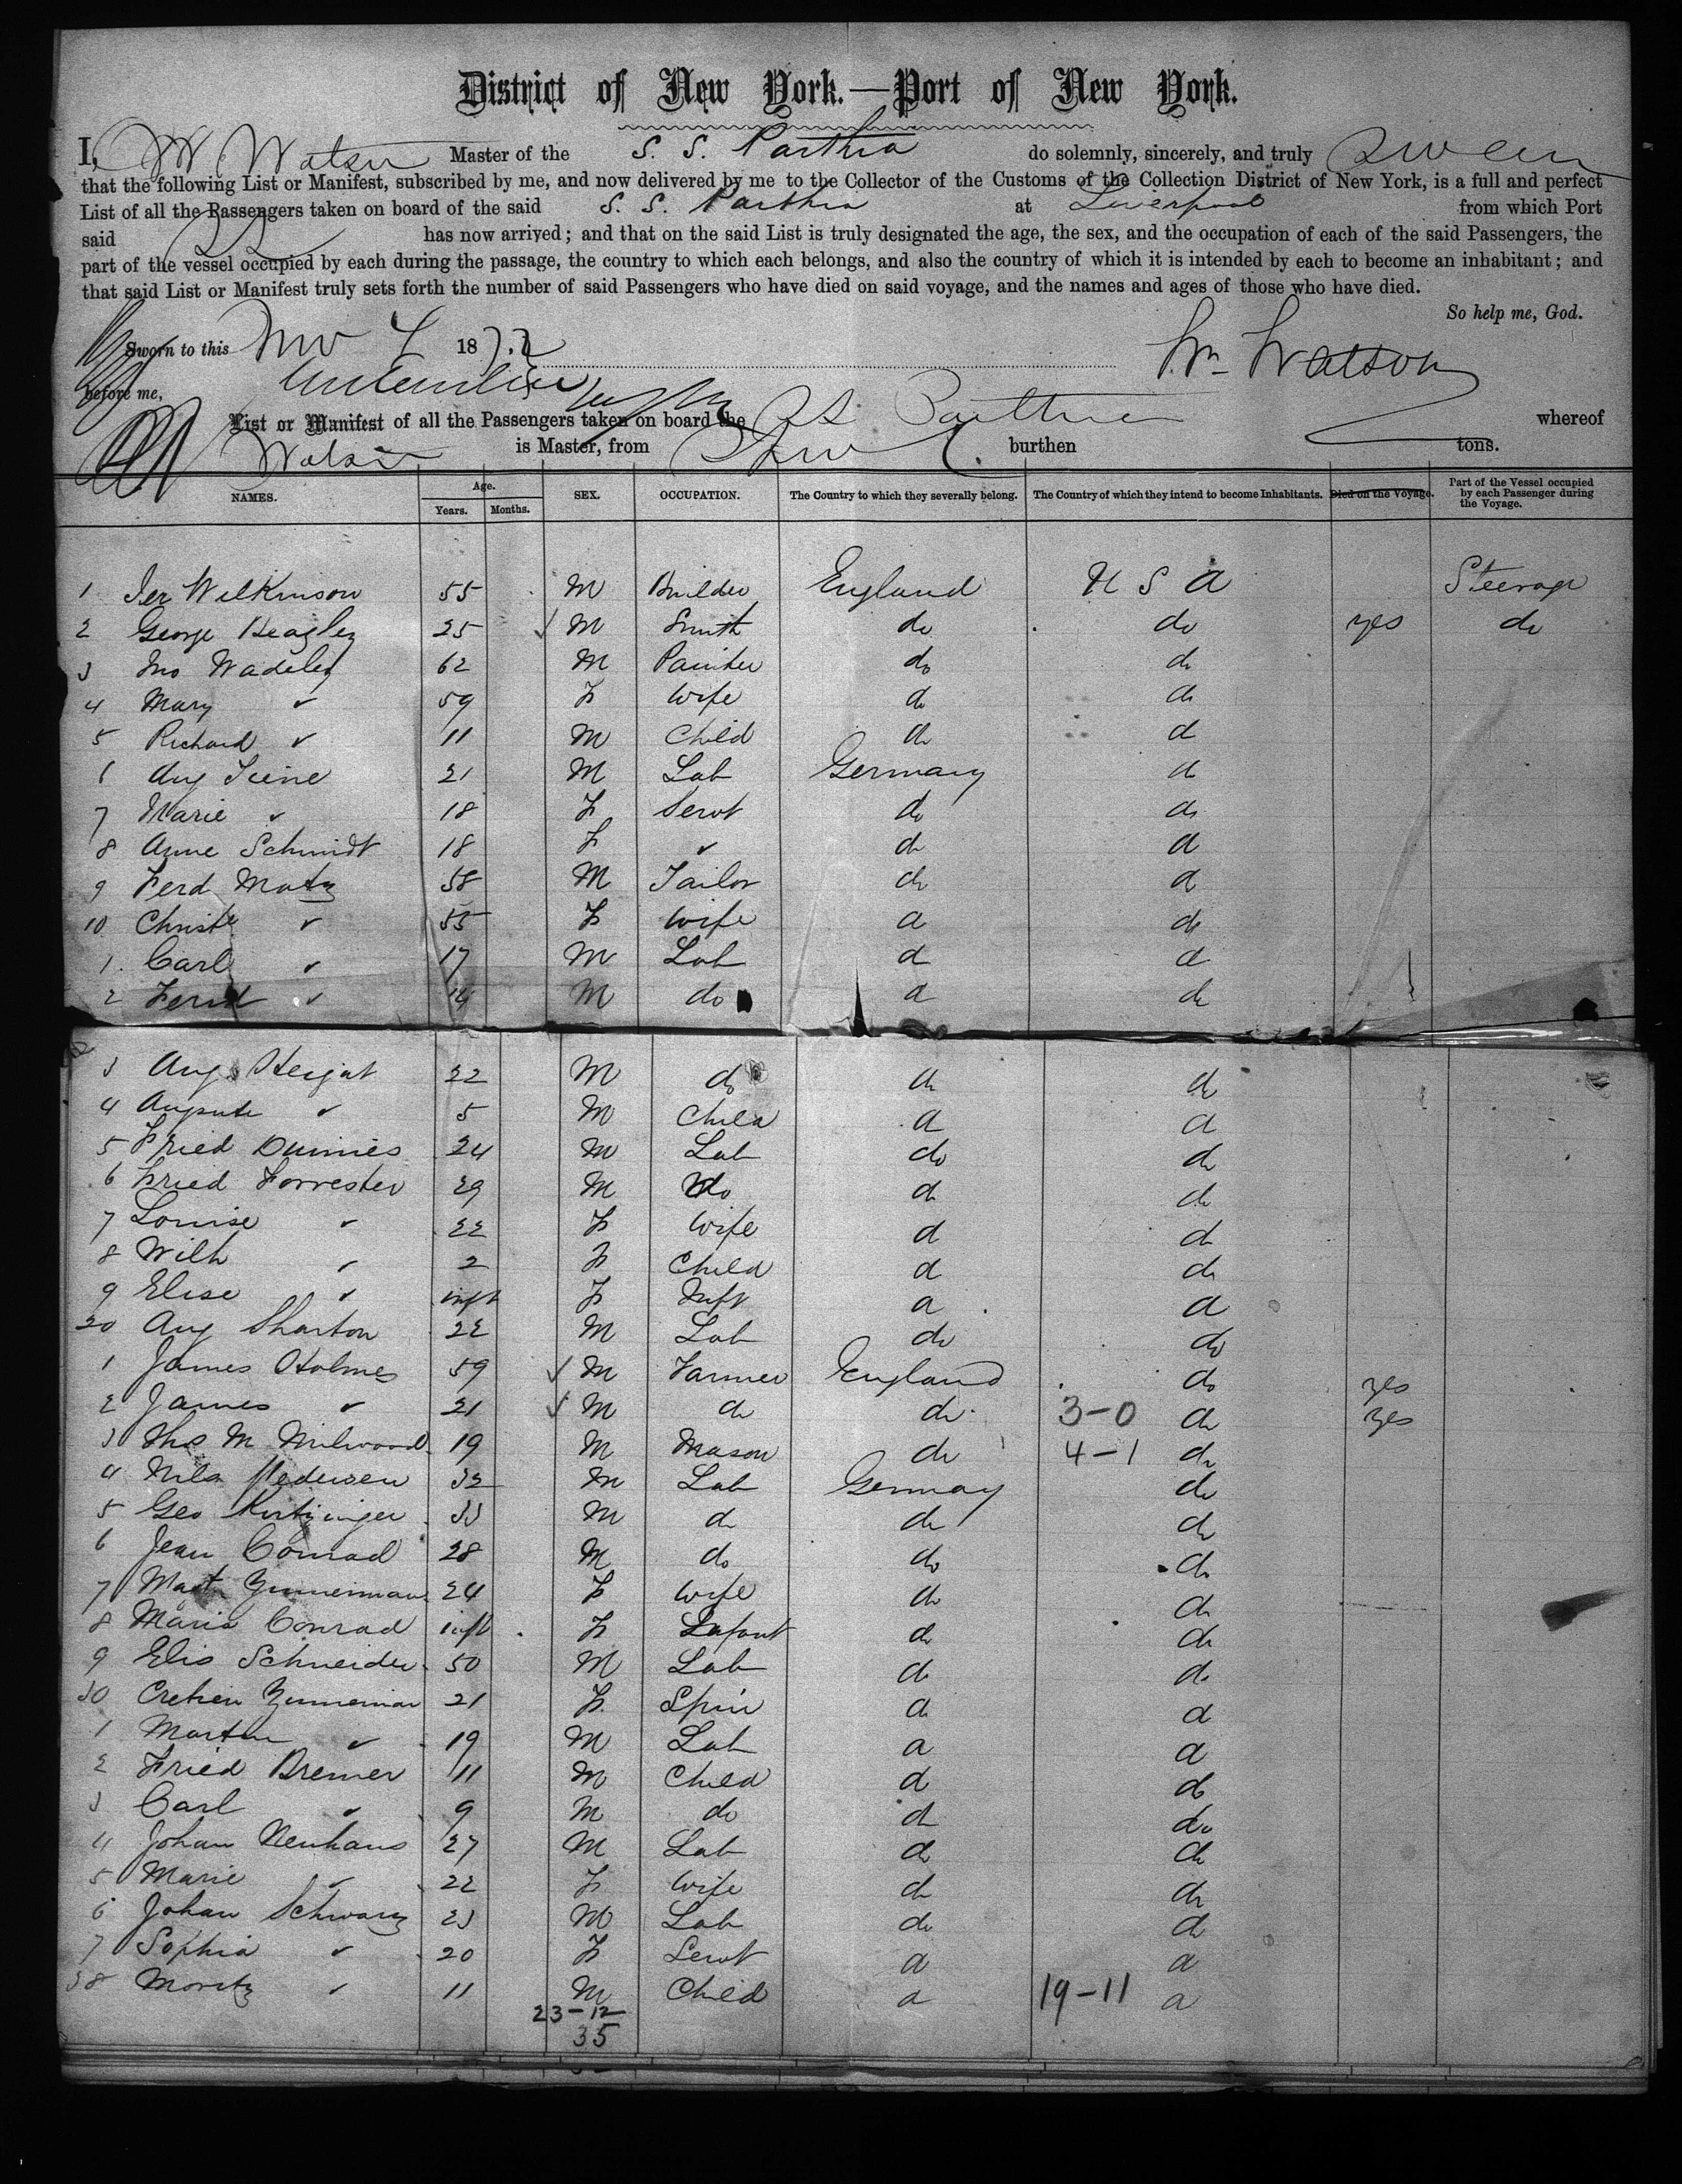 District of New York.—Port of New York.
I, W Watson Master of the S. S. Parthia do solemnly, sincerely, and truly swear
that the following List or Manifest, subscribed by me, and now delivered by me to the Collector of the Customs of the Collection District of New York, is a full and perfect
List of all the Passengers taken on board of the said S. S. Parthia at Liverpool from which Port
said has now arrived; and that on the said List is truly designated the age, the sex, and the occupation of each of the said Passengers, the
part of the vessel occupied by each during the passage, the country to which each belongs, and also the country of which it is intended by each to become an inhabitant; and
that said List or Manifest truly sets forth the number of said Passengers who have died on said voyage, and the names and ages of those who have died.
So help me, God.
Sworn to this Nov 187.2 Wm Watson
before me,
List or Manifest of all the Passengers taken on board the SS Parthia whereof
Watson is Master, from burthen tons.
NAMES. Age. Years. Months. SEX. OCCUPATION. The Country to which they severally belong. The Country of which they intend to become Inhabitants. Died on the Voyage. Part of the Vessel occupied by each Passenger during the Voyage.
1 Jer Wilkinson 55 M Builder England U S A Steerage
2 George Beagley 25 ✓ M Smith do do yes do
3 Jno Wadeley 62 M Painter do do
4 Mary ✓ 59 F Wife do do
5 Richard ✓ 11 M Child do do
6 Aug 21 M Lab Germany do
7 Marie ✓ 18 F Servt do do
8 Anne Schmidt 18 F ✓ do do
9 Ferd Motz 58 M Tailor do do
10 Christe ✓ 55 F Wife do do
1 Carl ✓ 17 M Lab do do
2 Ferd ✓ 14 M do do do
3 Aug 22 M do do do
4 Auguste ✓ 5 M Child do do
5 Fried 24 M Lab do do
6 Fried Forrester 29 M do do do
7 Louise ✓ 22 F Wife do do
8 Wilh ✓ 2 F Child do do
9 Elise ✓ inft F Inft do do
20 Aug Sharton 22 M Lab do do
1 James Holmes 59 ✓ M Farmer England do yes
2 James ✓ 21 ✓ M do do 3-0 do yes
3 Thos M Milwood 19 M Mason do 4-1 do
4 Nils Pedersen 32 M Lab Germany do
5 Geo Kurtzinger 33 M do do do
6 Jean Conrad 28 M do do do
7 Zimmerman 24 F Wife do do
8 Maria Conrad inft F Infant do do
9 Elis Schneider 50 M Lab do do
30 Zimmerman 21 F Spin do do
1 Martin ✓ 19 M Lab do do
2 Fried Bremer 11 M Child do do
3 Carl ✓ 9 M do do do
4 Johan Neuhaus 27 M Lab do do
5 Marie ✓ 22 F Wife do do
6 Johan Schwarz 23 M Lab do do
7 Sophia ✓ 20 F Servt do do
38 Moritz ✓ 11 M Child do 19-11 do
23-12
35